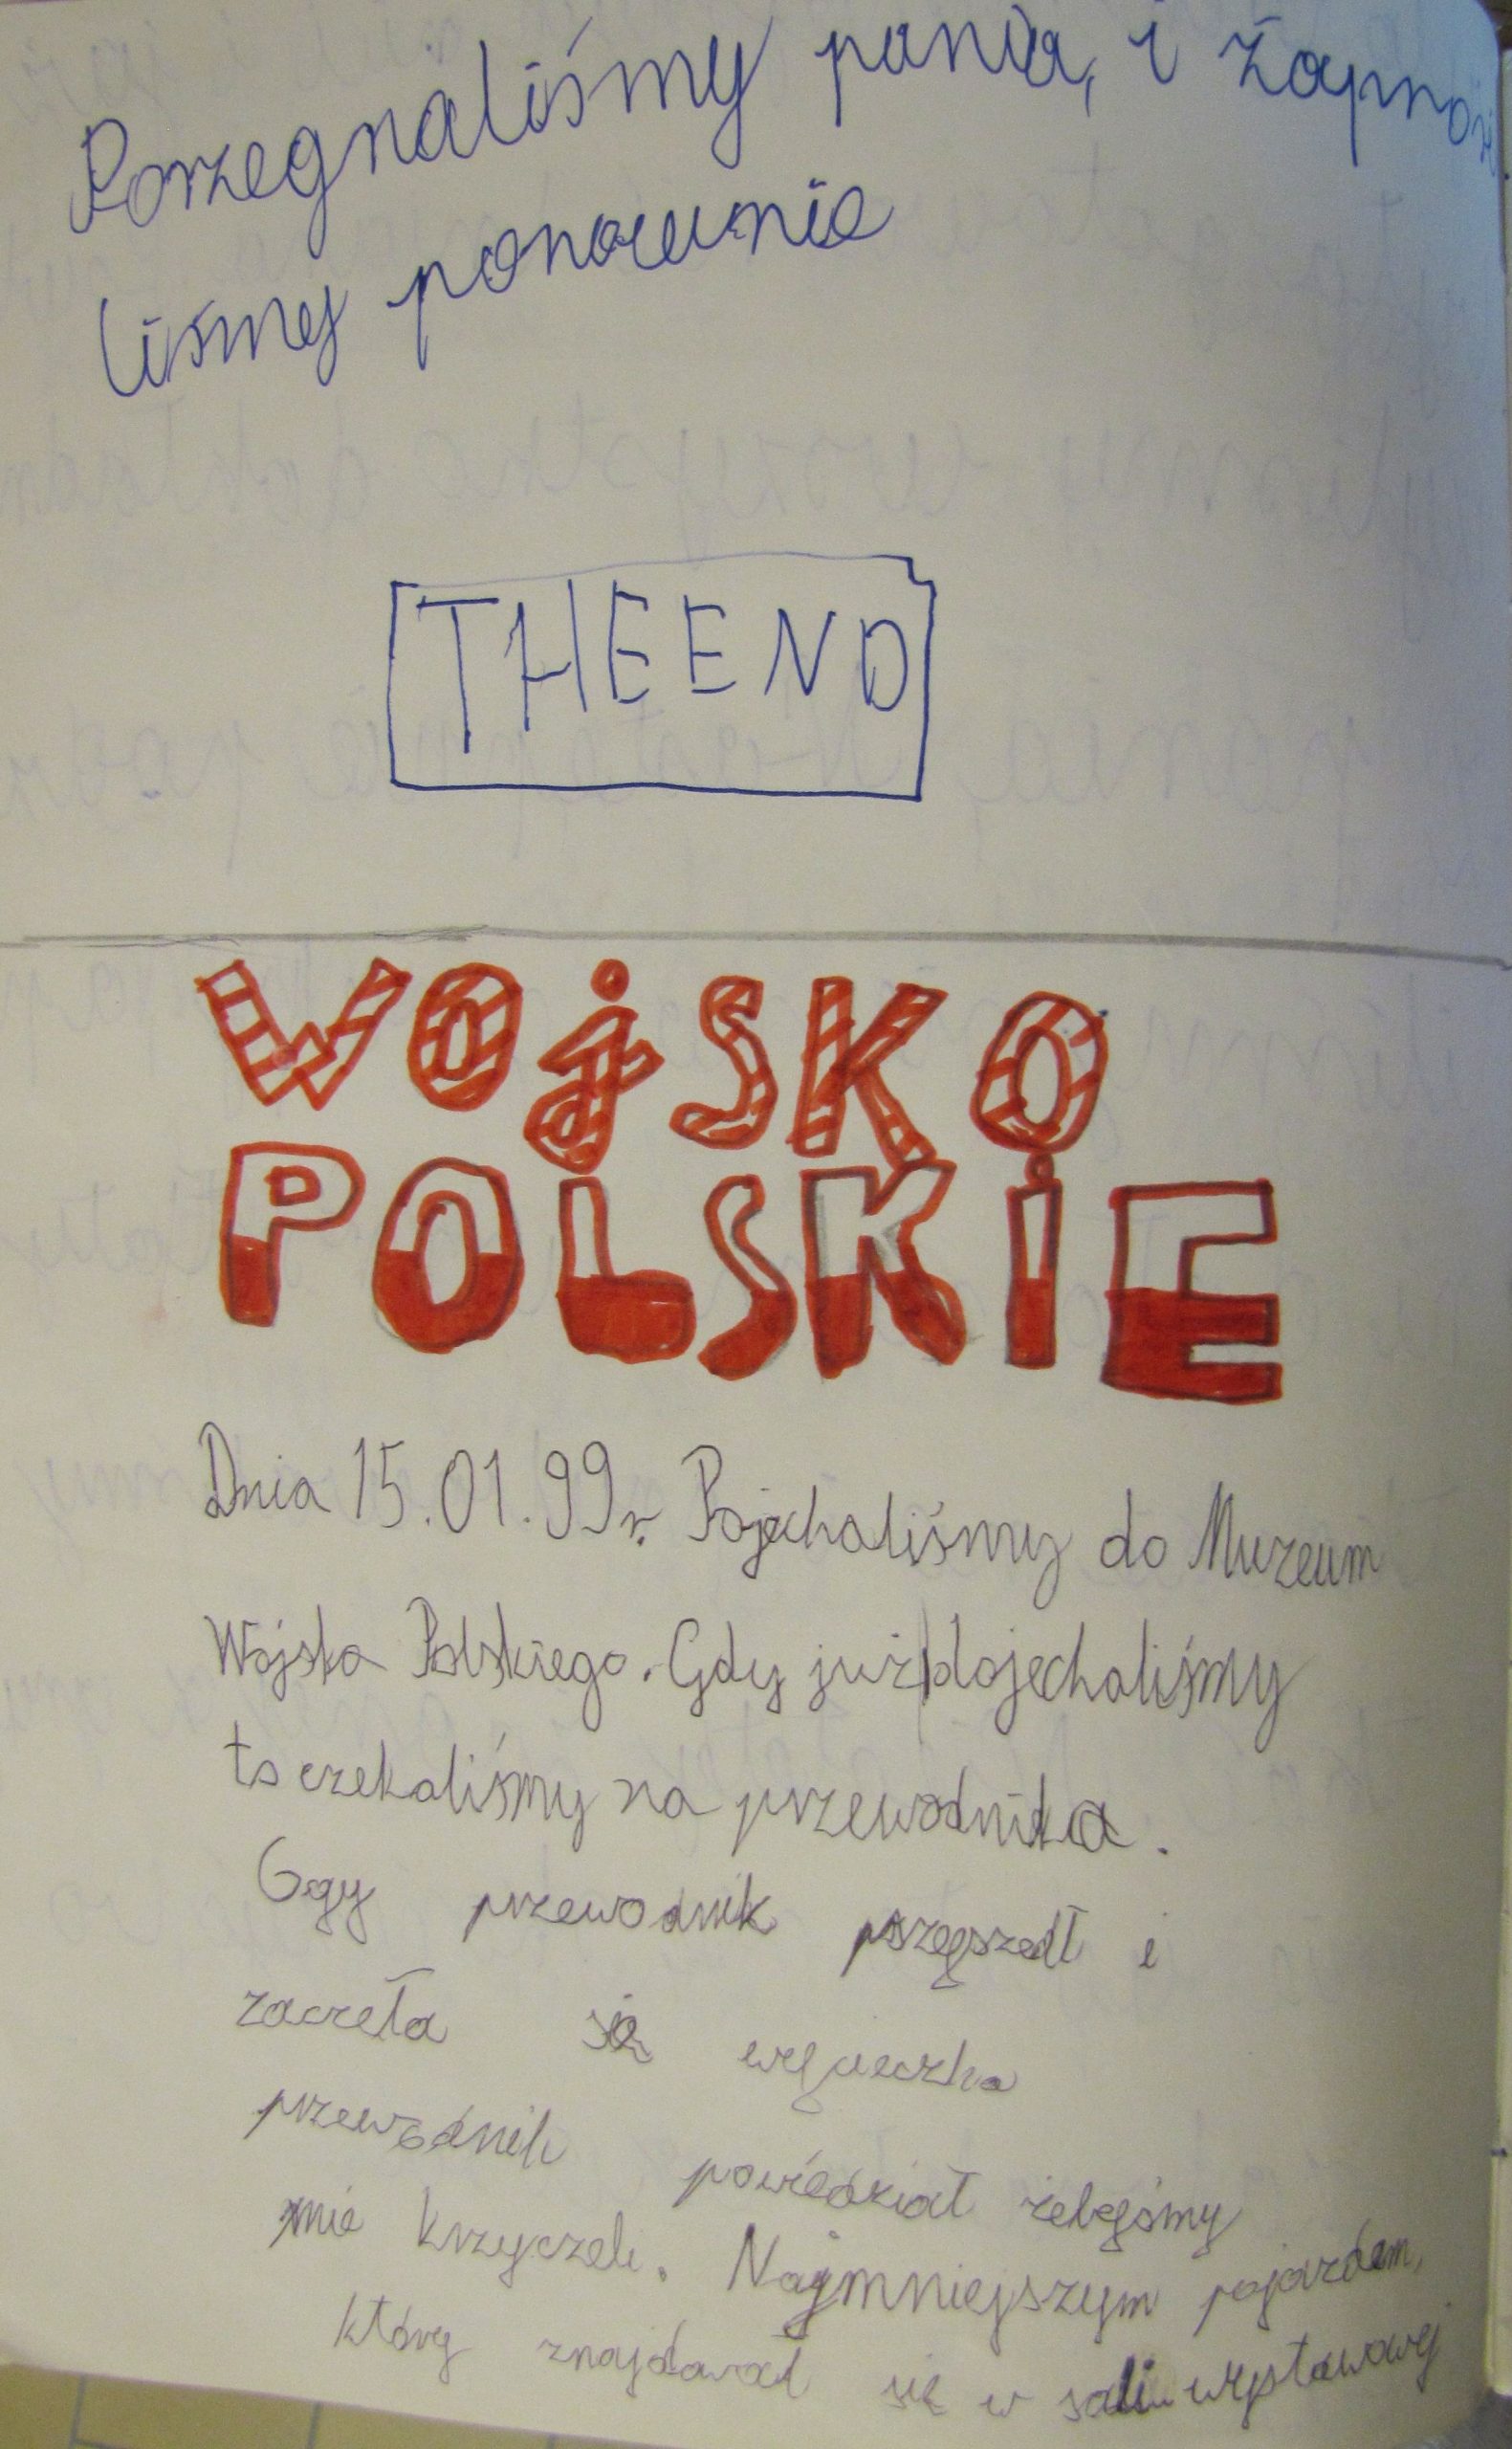 Porzegnaliśmy panią, i zaprosi
liśmy ponownie
THE END
WOjSKO
POLSKiE
Dnia 15.01.99r. Pojechaliśmy do Muzeum
Wojska Polskiego. Gdy już dojechaliśmy
to czekaliśmy na przewodnika.
Gdy przewodnik przyszedł i
zaczeła się wycieczka
przewodnik powiedział żebyśmy
nie krzyczeli. Najmniejszym pojazdem,
który znajdował się w sali wystawowej